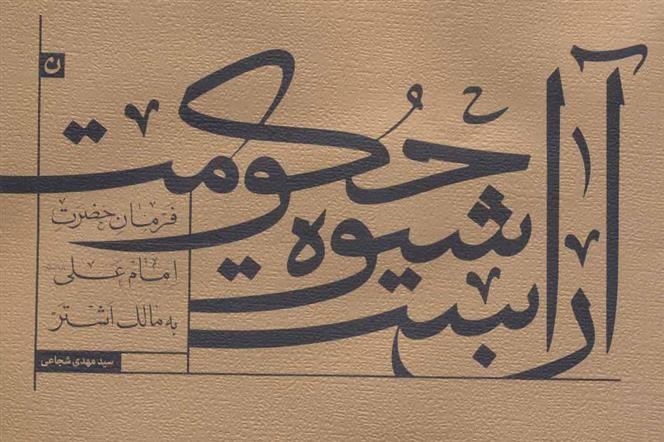 ن
شیوه
حکومت
فرمان حضرت
امام علی
به مالک اشتر
سید مهدی شجاعی